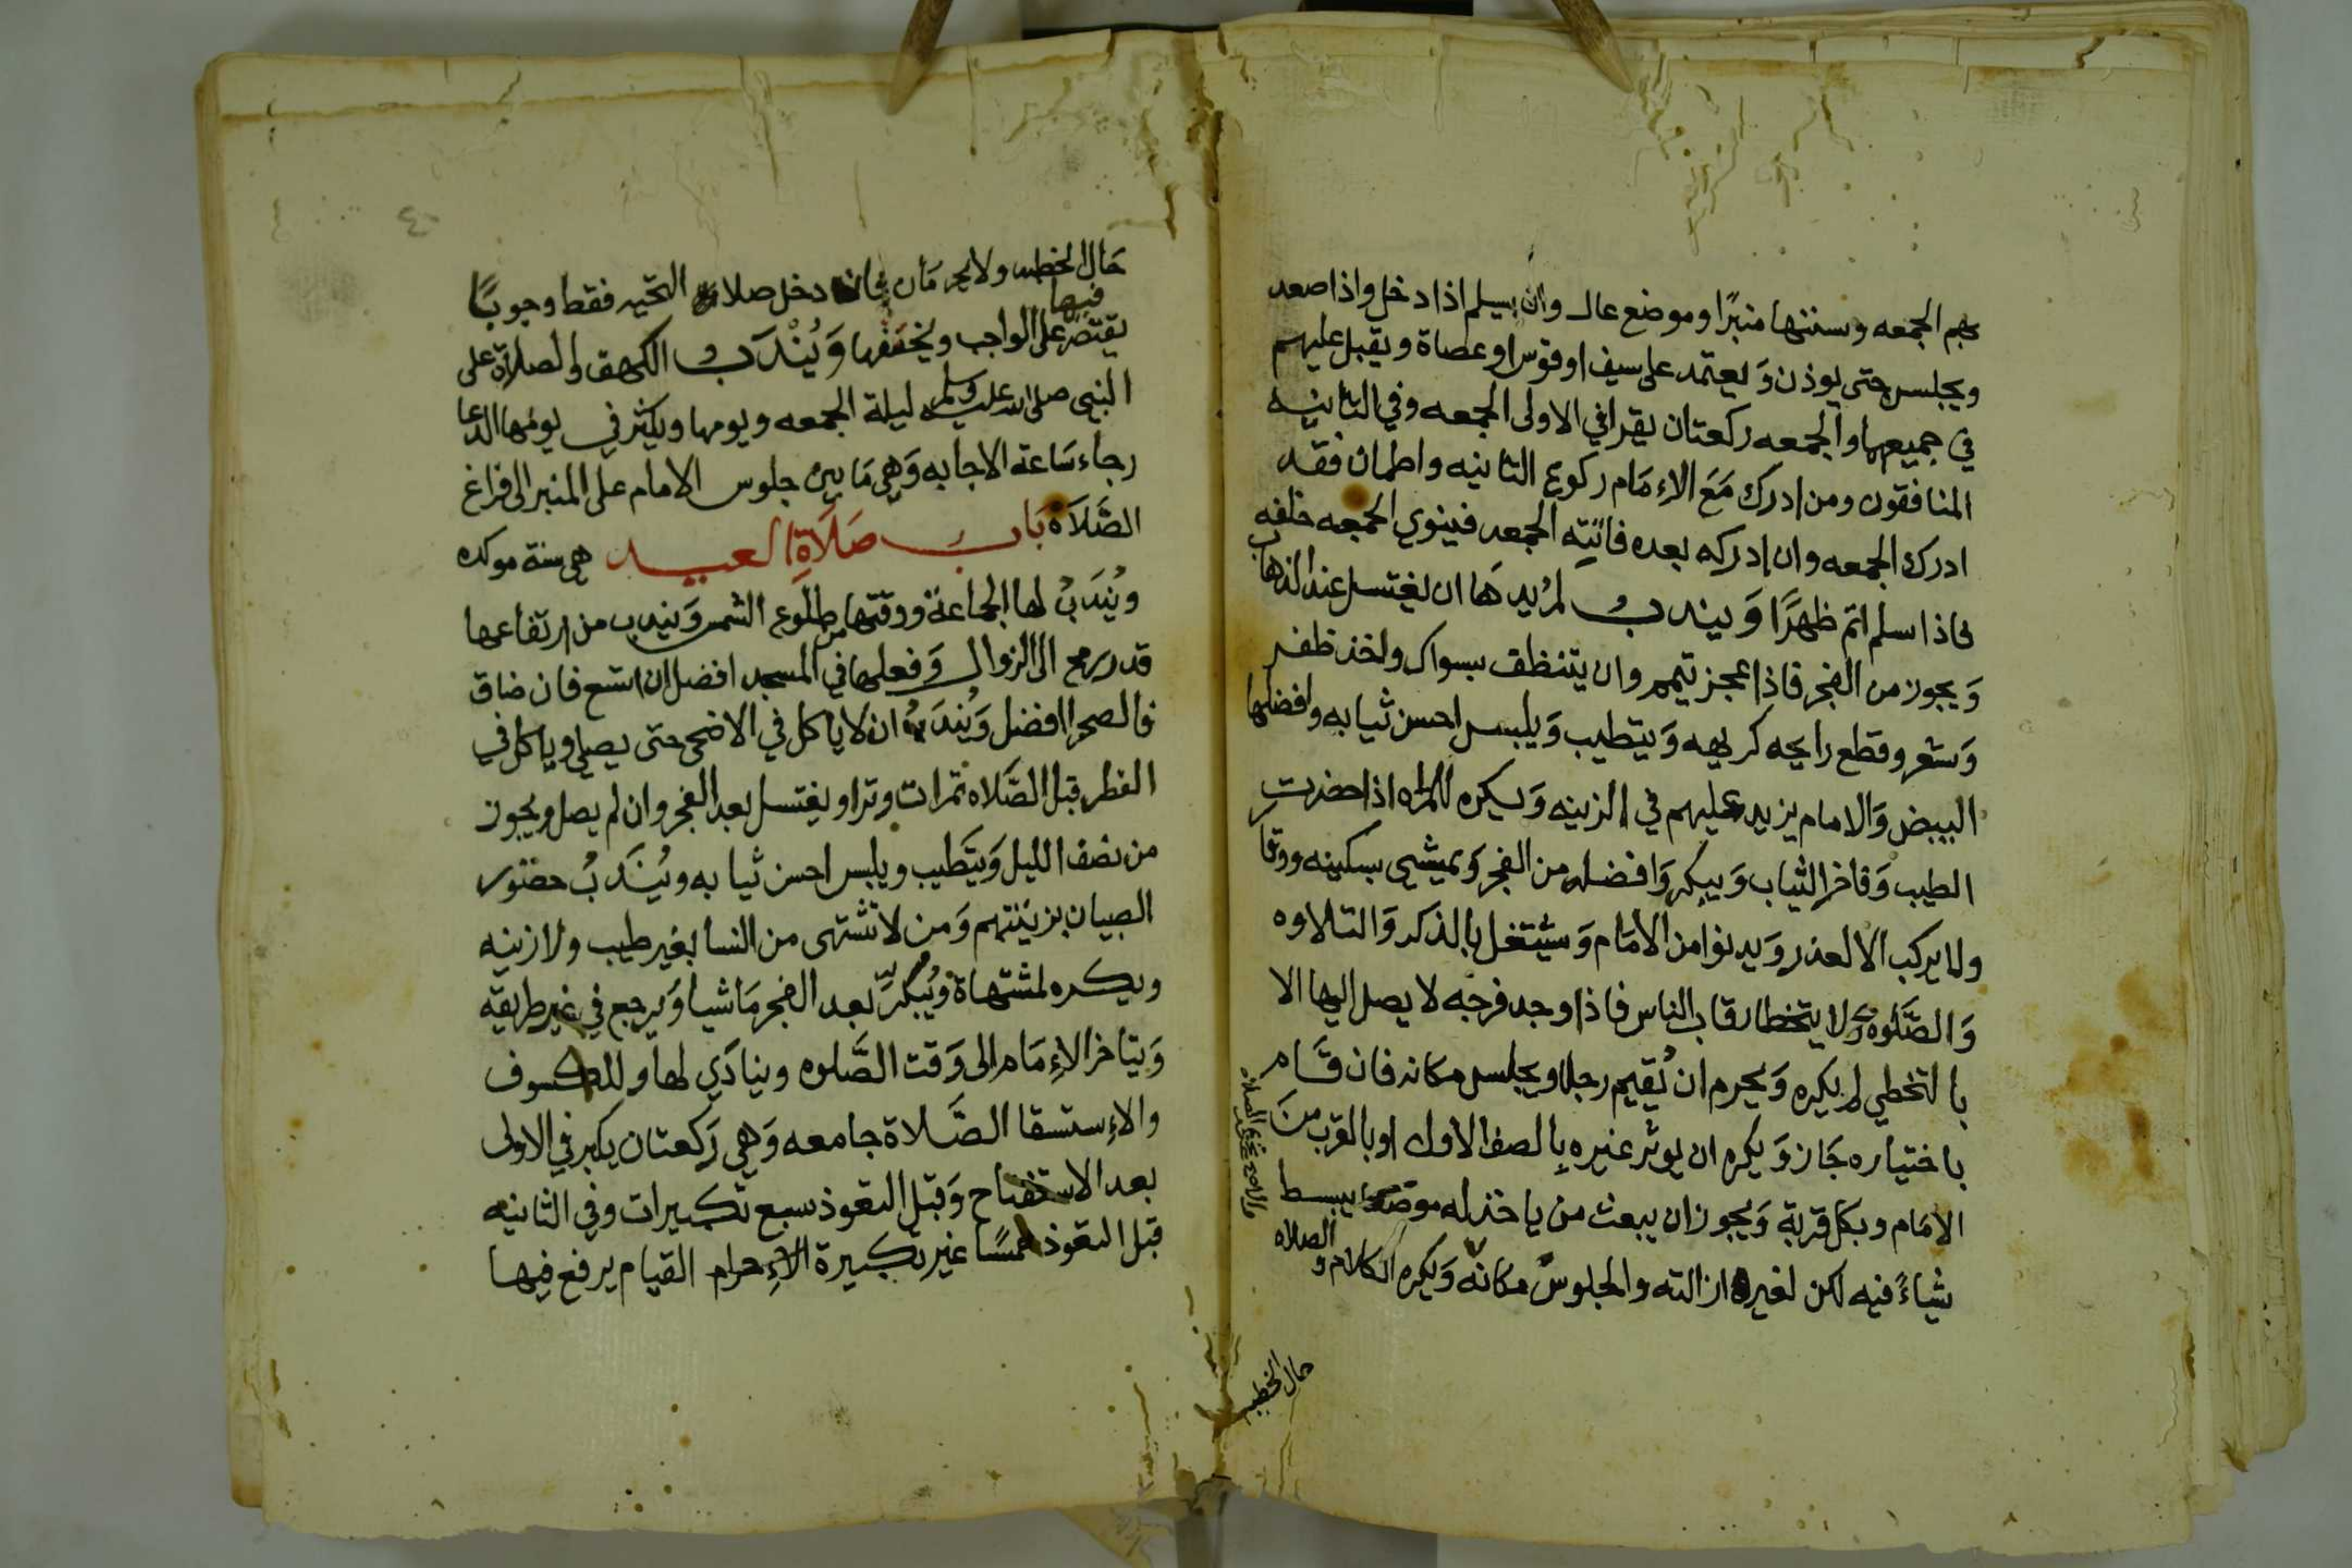 بهم الجمعه وسننها منبرًا وموضع عال وان يسلم اذا دخل واذا صعد
ويجلس حتى يوذن وَيعتمد على سيف او قوس او عصاة ويقبل عليهم
في جميعهما والجمعه ركعتان يقرا في الاولى الجمعه وفي الثانيه
المنافقون ومن ادرك مَعَ الاِمَام ركوع الثانيه واطمان فقد
ادرك الجمعه وان ادركه بعده فاتته الجمعه فينوي الجمعه خلفه
فاذا سلم اتم ظهرًا وَيندب لمُريدهَا ان يغتسل عند الذهاب
وَيجوز من الفجر فاذا عجز تيمم وان يتنظف بسواك واخذ ظفر
وَشعر وقطع رايحه كريهه وَيتطيب وَيلبس احسن ثيابه وافضلها
البيض وَالامام يزيد عليهم في الزينه وَيكره للمراه اذا حضرت
الطيب وَفاخر الثياب وَيبكر وَافضله من الفجر وَيمشي بسكينه ووقا
ولا يركب الا لعذر وَيدنوا من الامَام وَيشتغل بالذكر وَالتلاوه
وَالصَّلوه ولا يتخطا رقاب الناس فاذا وجد فرجه لا يصل اليها الا
بالتخطي لم يكره وَيحرم ان يُقيم رجلا ويجلس مكانه فان قَام
باختياره جَاز وَيكره ان يوثر غيره بالصف الاول او بالقرب منَ
الامام وبكل قربة وَيجوز ان يبعث من ياخذ له موضعا يبسط
شياءً فيه لكن لغيره ازالته والجلوس مكانه وَيكره الكلام و الصلاه
حال الخطبه
حَال الخطبه ولا يحرمَان فان دخل صلا التحيه فقط وجوبًا
فيها
يقتصر على الواجب ويخففها وَيُنْدَب الكهف والصلاة على
النبي صلى الله عليه وسلم ليلة الجمعه ويومها ويكثر في يومها الدعا
رجاء سَاعة الاجابه وَهي مَا بين جلوس الامام على المنبر الى فراغ
الصَّلَاه بَاب صَلَاةِ العيد هي سنة موكده
ويُندَبُ لها الجماعة ووقتها من طلُوع الشمس وَيندب من ارتفاعها
قدر رمح الى الزوال وَفعلها في المسجد افضل ان اتسع فان ضاق
فالصحرا افضل وَيُندَبُ ان لا ياكل في الاضحى حتى يصلي وياكل في
الفطر قبل الصَّلاه تمرات وترا ويغتسل بعد الفجر وان لم يصل ويجوز
من نصف الليل وَيتَطيب ويلبس احسن ثيابه ويُندَبُ حضور
الصبيان بزينتهم وَمن لا تشتهى من النسا بغير طيب ولا زينه
ويكره لمشتهاة ويُبكرّ بعد الفجر مَاشيا وَيرجع في غير طريقه
وَيتاخر الاِمَام الى وَقت الصَّلوه وينادَي لها وللكسوف
والاِستسقا الصَّلاة جامعه وَهي رَكعتان يكبر في الاولى
بعد الاستفتاح وَقبل التعوذ سبع تكبيرات وفي الثانيه
قبل التعوذ خمسًا غير تكبيرة الاِحرام القيام يرفع فيها